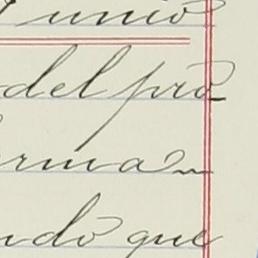 unio
del pró-
rma
ndo que